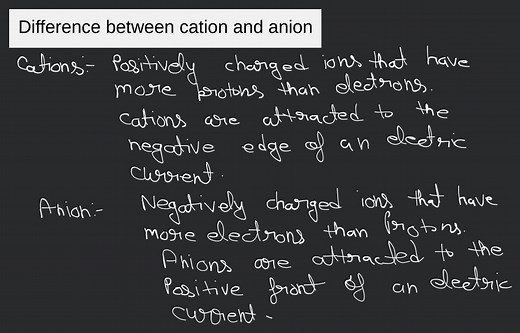 Difference between cation and anion
Cations:- Positively charged ions that have
more protons than electrons.
Cations are attracted to the
negative edge of an electric
current.
Anion:- Negatively charged ions that have
more electrons than Protons.
Anions are attracted to the
Positive front of an electric
current.